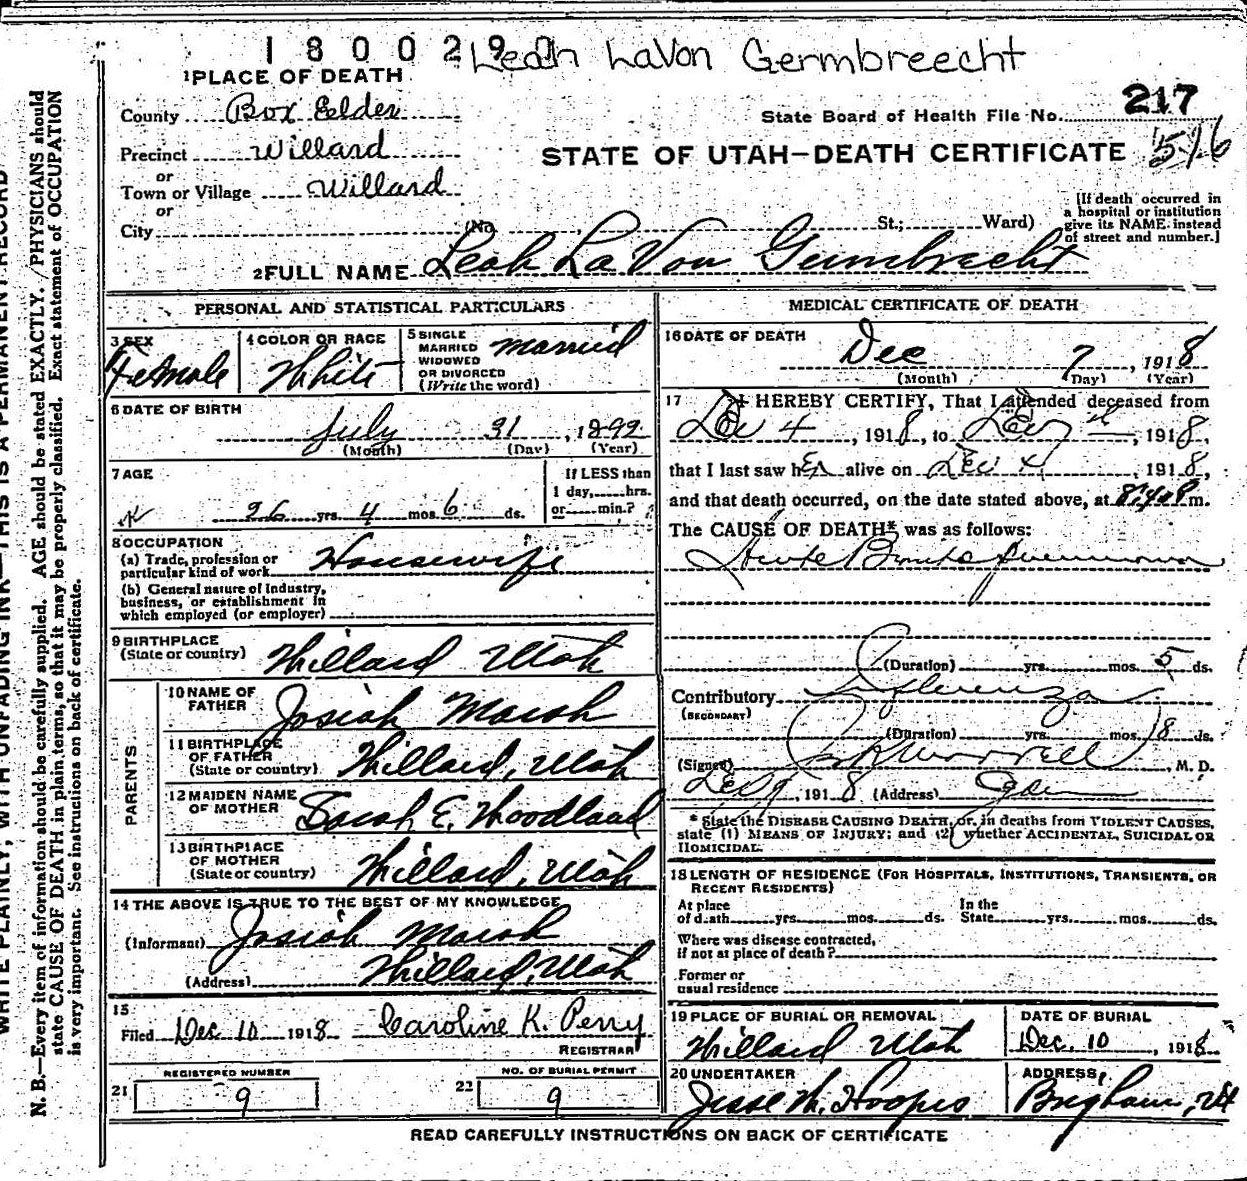 1800290 Leah LaVon Germbreecht
1 PLACE OF DEATH
County Box Elder
State Board of Health File No. 217
Precinct Willard
STATE OF UTAH—DEATH CERTIFICATE 516
or
Town or Village Willard
or
City (No. St.; Ward)
[If death occurred in
a hospital or institution
give its NAME instead
of street and number.]
2 FULL NAME Leah LaVon Germbrecht
PERSONAL AND STATISTICAL PARTICULARS
3 SEX Female
4 COLOR OR RACE White
5 SINGLE
MARRIED
WIDOWED
OR DIVORCED
(Write the word) married
6 DATE OF BIRTH
July 31, 1892
(Month) (Day) (Year)
7 AGE
26 yrs. 4 mos. 6 ds.
If LESS than
1 day, hrs.
or min.?
8 OCCUPATION
(a) Trade, profession or
particular kind of work Housewife
(b) General nature of industry,
business, or establishment in
which employed (or employer)
9 BIRTHPLACE
(State or country) Willard Utah
PARENTS
10 NAME OF
FATHER Josiah Marsh
11 BIRTHPLACE
OF FATHER
(State or country) Willard, Utah
12 MAIDEN NAME
OF MOTHER Sarah E. Woodland
13 BIRTHPLACE
OF MOTHER
(State or country) Willard, Utah
14 THE ABOVE IS TRUE TO THE BEST OF MY KNOWLEDGE
(Informant) Josiah Marsh
(Address) Willard, Utah
15
Filed Dec 10 1918 Caroline K. Perry
REGISTRAR
REGISTERED NUMBER
21 9
NO. OF BURIAL PERMIT
22 9
MEDICAL CERTIFICATE OF DEATH
16 DATE OF DEATH
Dec 7, 1918
(Month) (Day) (Year)
17 I HEREBY CERTIFY, That I attended deceased from
Dec 4, 1918, to Dec 7th, 1918,
that I last saw her alive on Dec 4, 1918,
and that death occurred, on the date stated above, at 8:40 P m.
The CAUSE OF DEATH* was as follows:
Acute Broncho pneumonia
(Duration) yrs. mos. 5 ds.
Contributory Influenza
(SECONDARY)
(Duration) yrs. mos. 8 ds.
(Signed) Worrell, M. D.
Dec 9, 1918 (Address) Ogden
* State the DISEASE CAUSING DEATH, or, in deaths from VIOLENT CAUSES,
state (1) MEANS OF INJURY; and (2) whether ACCIDENTAL, SUICIDAL OR
HOMICIDAL.
18 LENGTH OF RESIDENCE (FOR HOSPITALS, INSTITUTIONS, TRANSIENTS, OR
RECENT RESIDENTS)
At place
of death yrs. mos. ds.
In the
State yrs. mos. ds.
Where was disease contracted,
if not at place of death?
Former or
usual residence
19 PLACE OF BURIAL OR REMOVAL
Willard Utah
DATE OF BURIAL
Dec. 10, 1918
20 UNDERTAKER
Jesse W. Hoopes
ADDRESS,
Brigham, Ut
READ CAREFULLY INSTRUCTIONS ON BACK OF CERTIFICATE
WRITE PLAINLY, WITH UNFADING INK—THIS IS A PERMANENT RECORD
N. B.—Every item of information should be carefully supplied. AGE should be stated EXACTLY. PHYSICIANS should
state CAUSE OF DEATH in plain terms, so that it may be properly classified. Exact statement of OCCUPATION
is very important. See instructions on back of certificate.